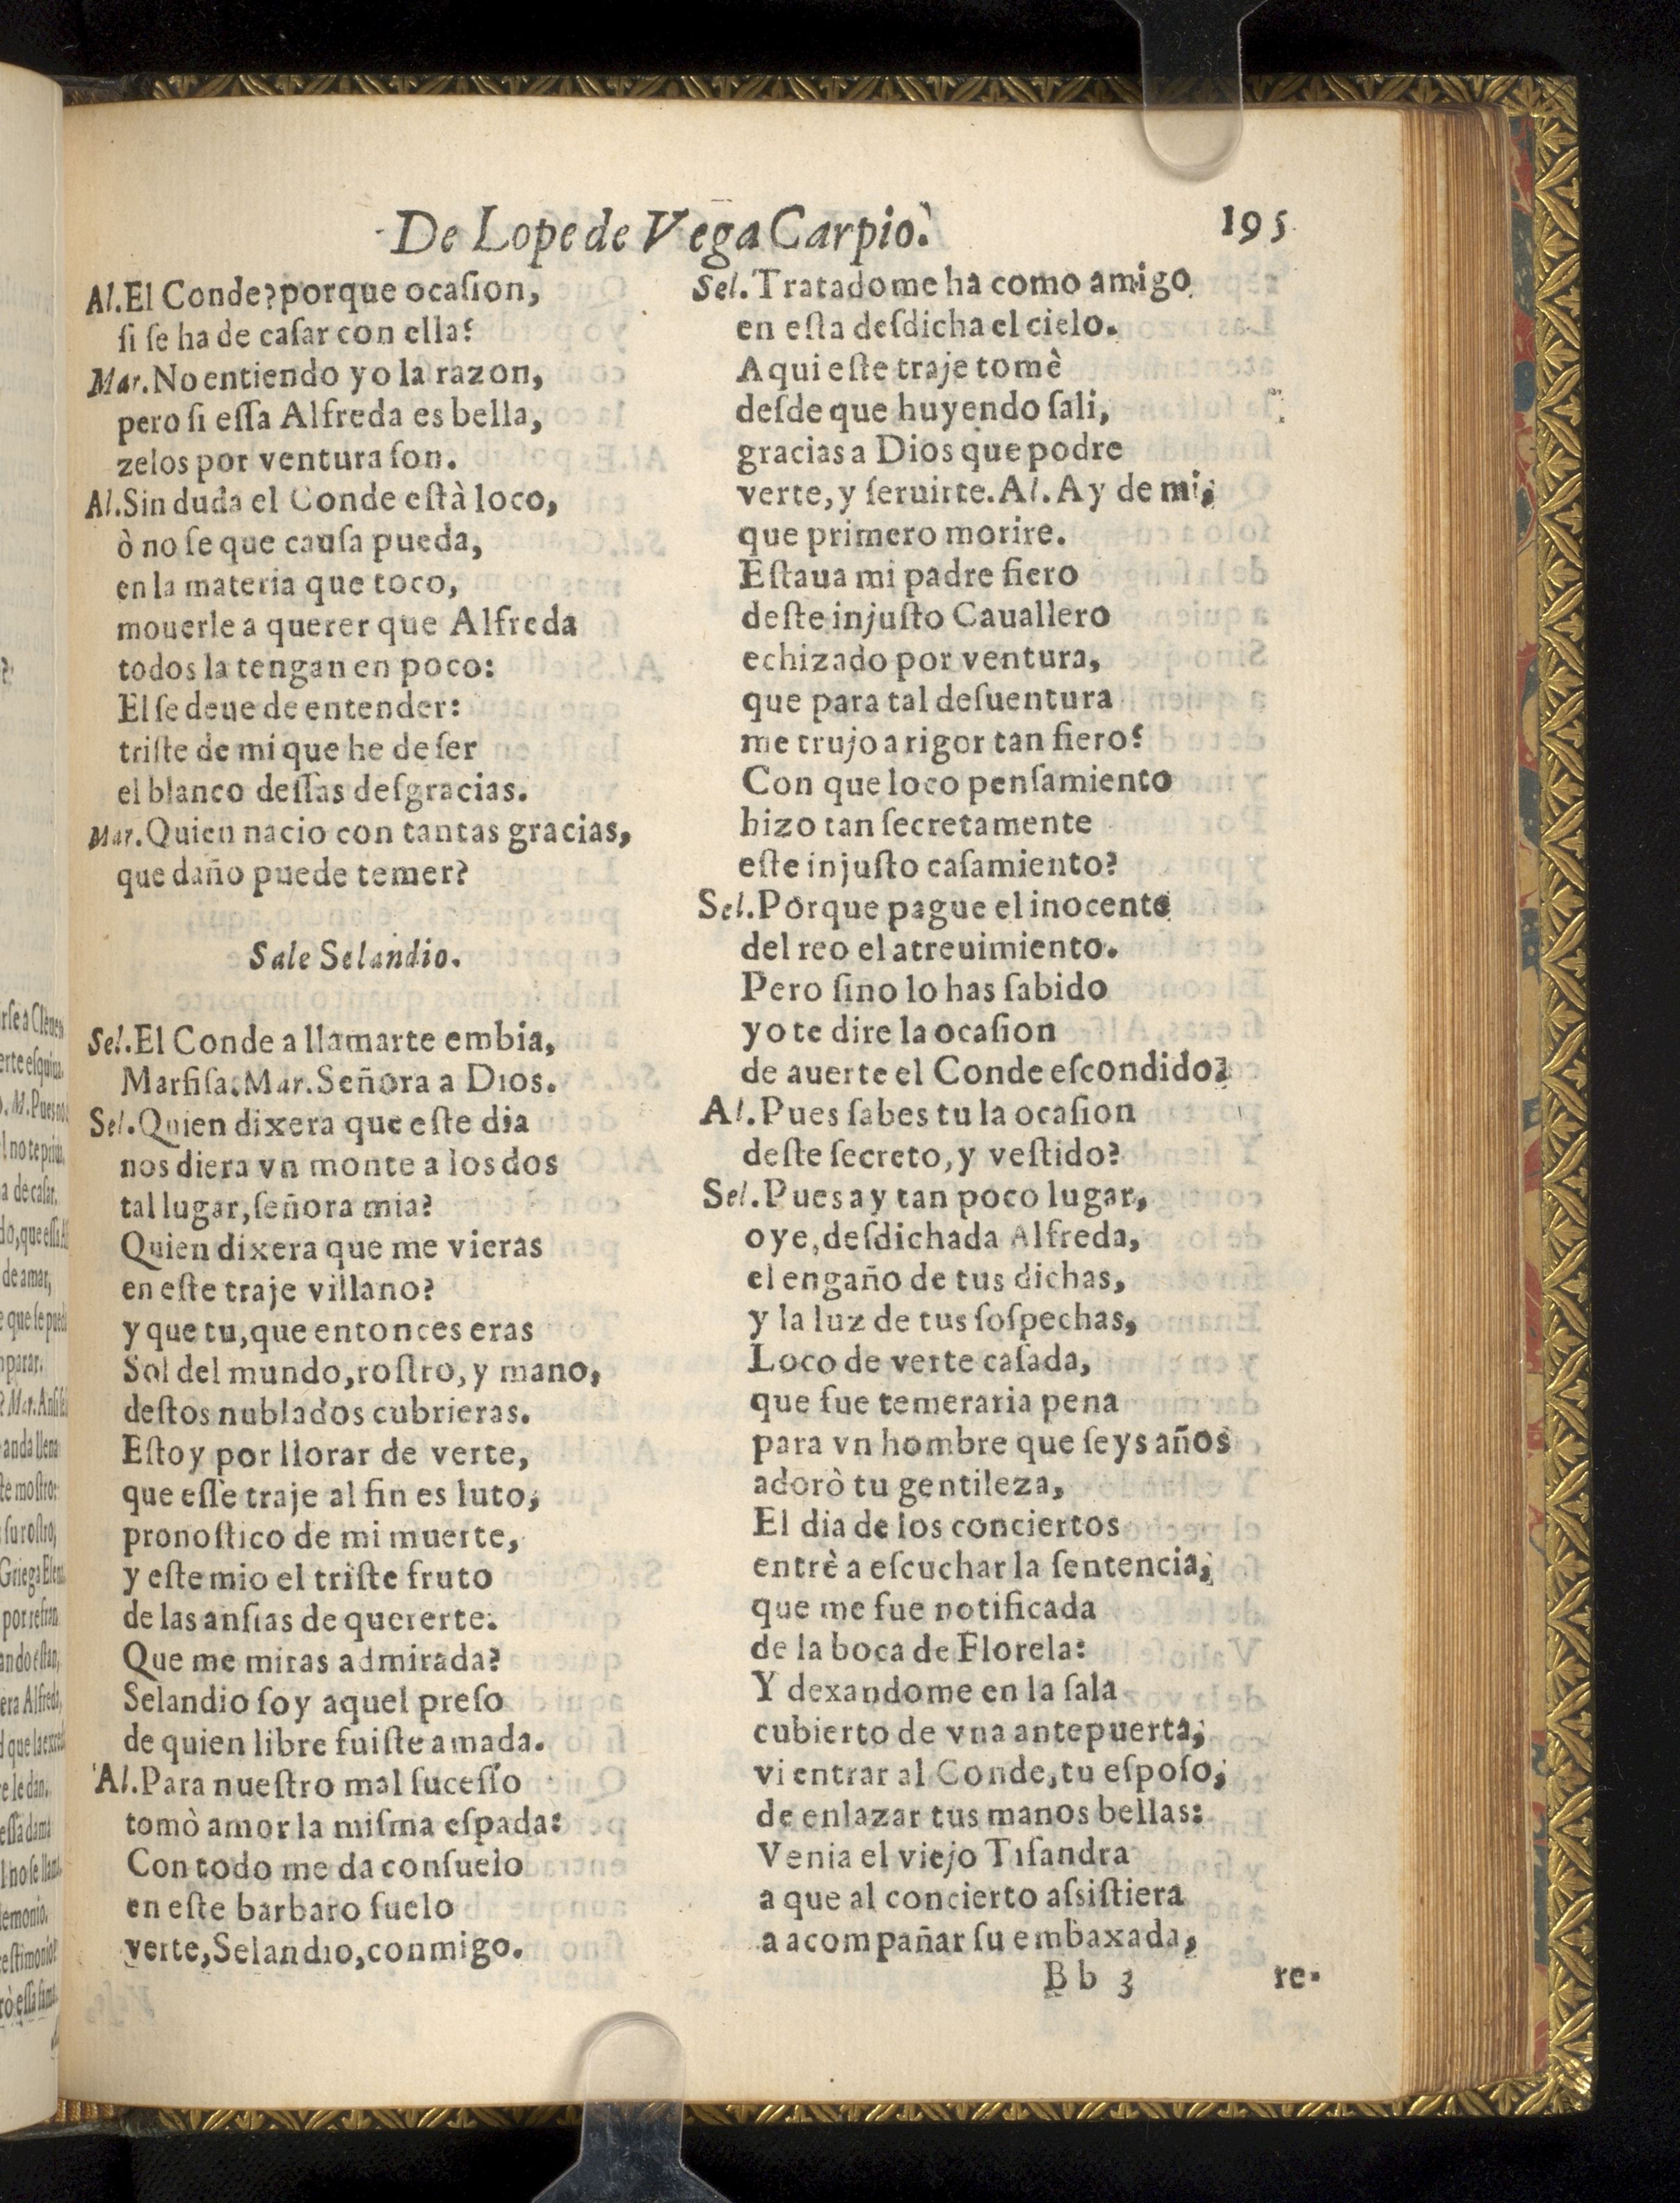 De Lope de Vega Carpio.
195
Al. El Conde? porque ocaſion,
ſi ſe ha de caſar con ella?
Mar. No entiendo yo la razon,
pero ſi eſſa Alfreda es bella,
zelos por ventura ſon.
Al. Sin duda el Conde eſtà loco,
ò no ſe que cauſa pueda,
en la materia que toco,
mouerle a querer que Alfreda
todos la tengan en poco:
El ſe deue de entender:
triſte de mi que he de ſer
el blanco deſſas deſgracias.
Mar. Quien nacio con tantas gracias,
que daño puede temer?
Sale Selandio.
Sel. El Conde a llamarte embia,
Marfiſa. Mar. Señora a Dios.
Sel. Quien dixera que eſte dia
nos diera vn monte a los dos
tal lugar, ſeñora mia?
Quien dixera que me vieras
en eſte traje villano?
y que tu, que entonces eras
Sol del mundo, roſtro, y mano,
deſtos nublados cubrieras.
Eſtoy por llorar de verte,
que eſſe traje al fin es luto,
pronoſtico de mi muerte,
y eſte mio el triſte fruto
de las anſias de quererte.
Que me miras admirada?
Selandio ſoy aquel preſo
de quien libre fuiſte amada.
Al. Para nueſtro mal ſuceſſo
tomò amor la miſma eſpada:
Con todo me da conſuelo
en eſte barbaro ſuelo
verte, Selandio, conmigo.
Sel. Tratadome ha como amigo
en eſta deſdicha el cielo.
Aqui eſte traje tomè
deſde que huyendo ſali,
gracias a Dios que podre
verte, y ſeruirte. Al. Ay de mi,
que primero morire.
Eſtaua mi padre fiero
deſte injuſto Cauallero
echizado por ventura,
que para tal deſuentura
me trujo a rigor tan fiero?
Con que loco penſamiento
hizo tan ſecretamente
eſte injuſto caſamiento?
Sel. Porque pague el inocente
del reo el atreuimiento.
Pero ſino lo has ſabido
yo te dire la ocaſion
de auerte el Conde eſcondido?
Al. Pues ſabes tu la ocaſion
deſte ſecreto, y veſtido?
Sel. Pues ay tan poco lugar,
oye, deſdichada Alfreda,
el engaño de tus dichas,
y la luz de tus ſoſpechas,
Loco de verte caſada,
que fue temeraria pena
para vn hombre que ſeys años
adorò tu gentileza,
El dia de los conciertos
entrè a eſcuchar la ſentencia,
que me fue notificada
de la boca de Florela:
Y dexandome en la ſala
cubierto de vna antepuerta,
vi entrar al Conde, tu eſpoſo,
de enlazar tus manos bellas:
Venia el viejo Tiſandra
a que al concierto aſsiſtiera
a acompañar ſu embaxada,
Bb 3
re-